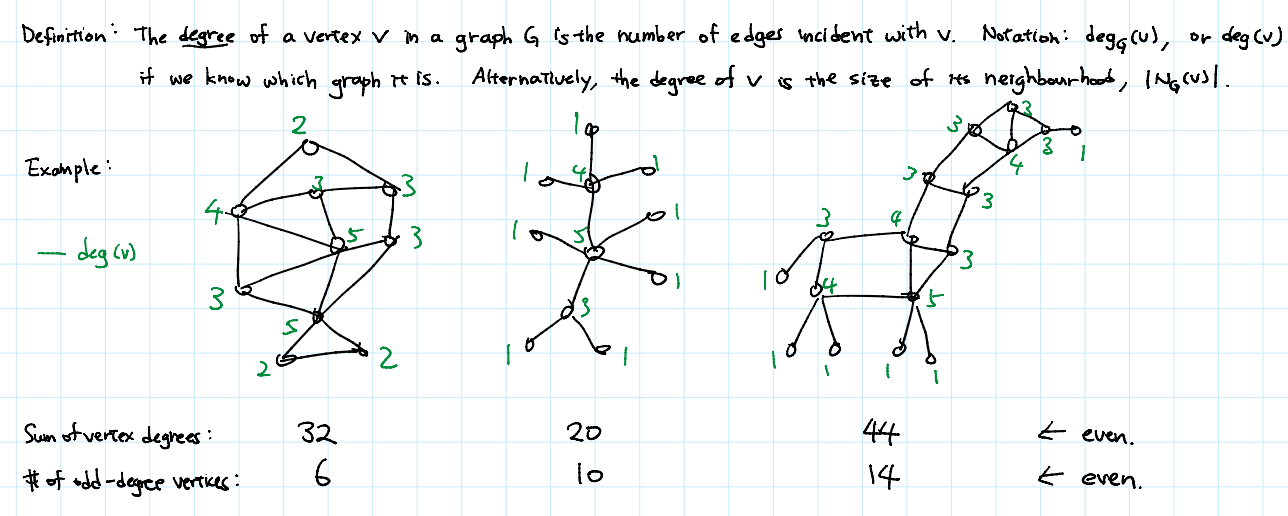 Definition: The degree of a vertex v in a graph G is the number of edges incident with v. Notation: deg_G(v), or deg(v)
if we know which graph it is. Alternatively, the degree of v is the size of its neighbourhood, |N_G(v)|.
Example:
— deg(v)
2
4 3 3
5 3
3
5
2 2
1
1 4 1
1 5 1
1
3
1 1
3
3 4 3 1
3 3
3 4 3
1 4 5
1 1 1 1
Sum of vertex degrees: 32 20 44 ← even.
# of odd-degree vertices: 6 10 14 ← even.